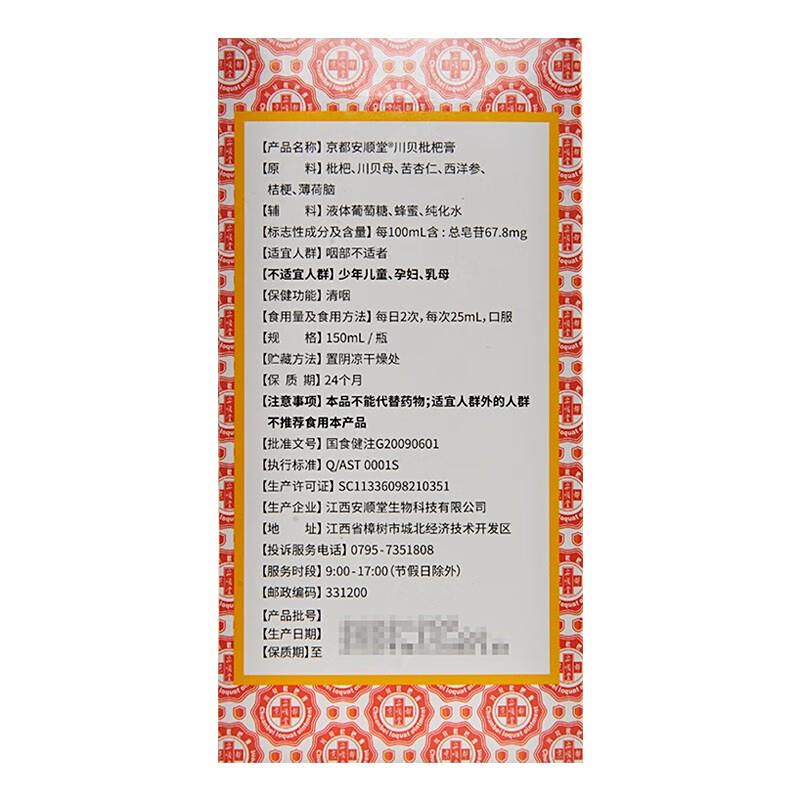 【产品名称】京都安顺堂®川贝枇杷膏
【原　　料】枇杷、川贝母、苦杏仁、西洋参、
桔梗、薄荷脑
【辅　　料】液体葡萄糖、蜂蜜、纯化水
【标志性成分及含量】每100mL含：总皂苷67.8mg
【适宜人群】咽部不适者
【不适宜人群】少年儿童、孕妇、乳母
【保健功能】清咽
【食用量及食用方法】每日2次，每次25mL，口服
【规　　格】150mL / 瓶
【贮藏方法】置阴凉干燥处
【保 质 期】24个月
【注意事项】本品不能代替药物；适宜人群外的人群
不推荐食用本产品
【批准文号】国食健注G20090601
【执行标准】Q/AST 0001S
【生产许可证】SC11336098210351
【生产企业】江西安顺堂生物科技有限公司
【地　　址】江西省樟树市城北经济技术开发区
【投诉服务电话】0795-7351808
【服务时段】9:00-17:00（节假日除外）
【邮政编码】331200
【产品批号】
【生产日期】
【保质期】至